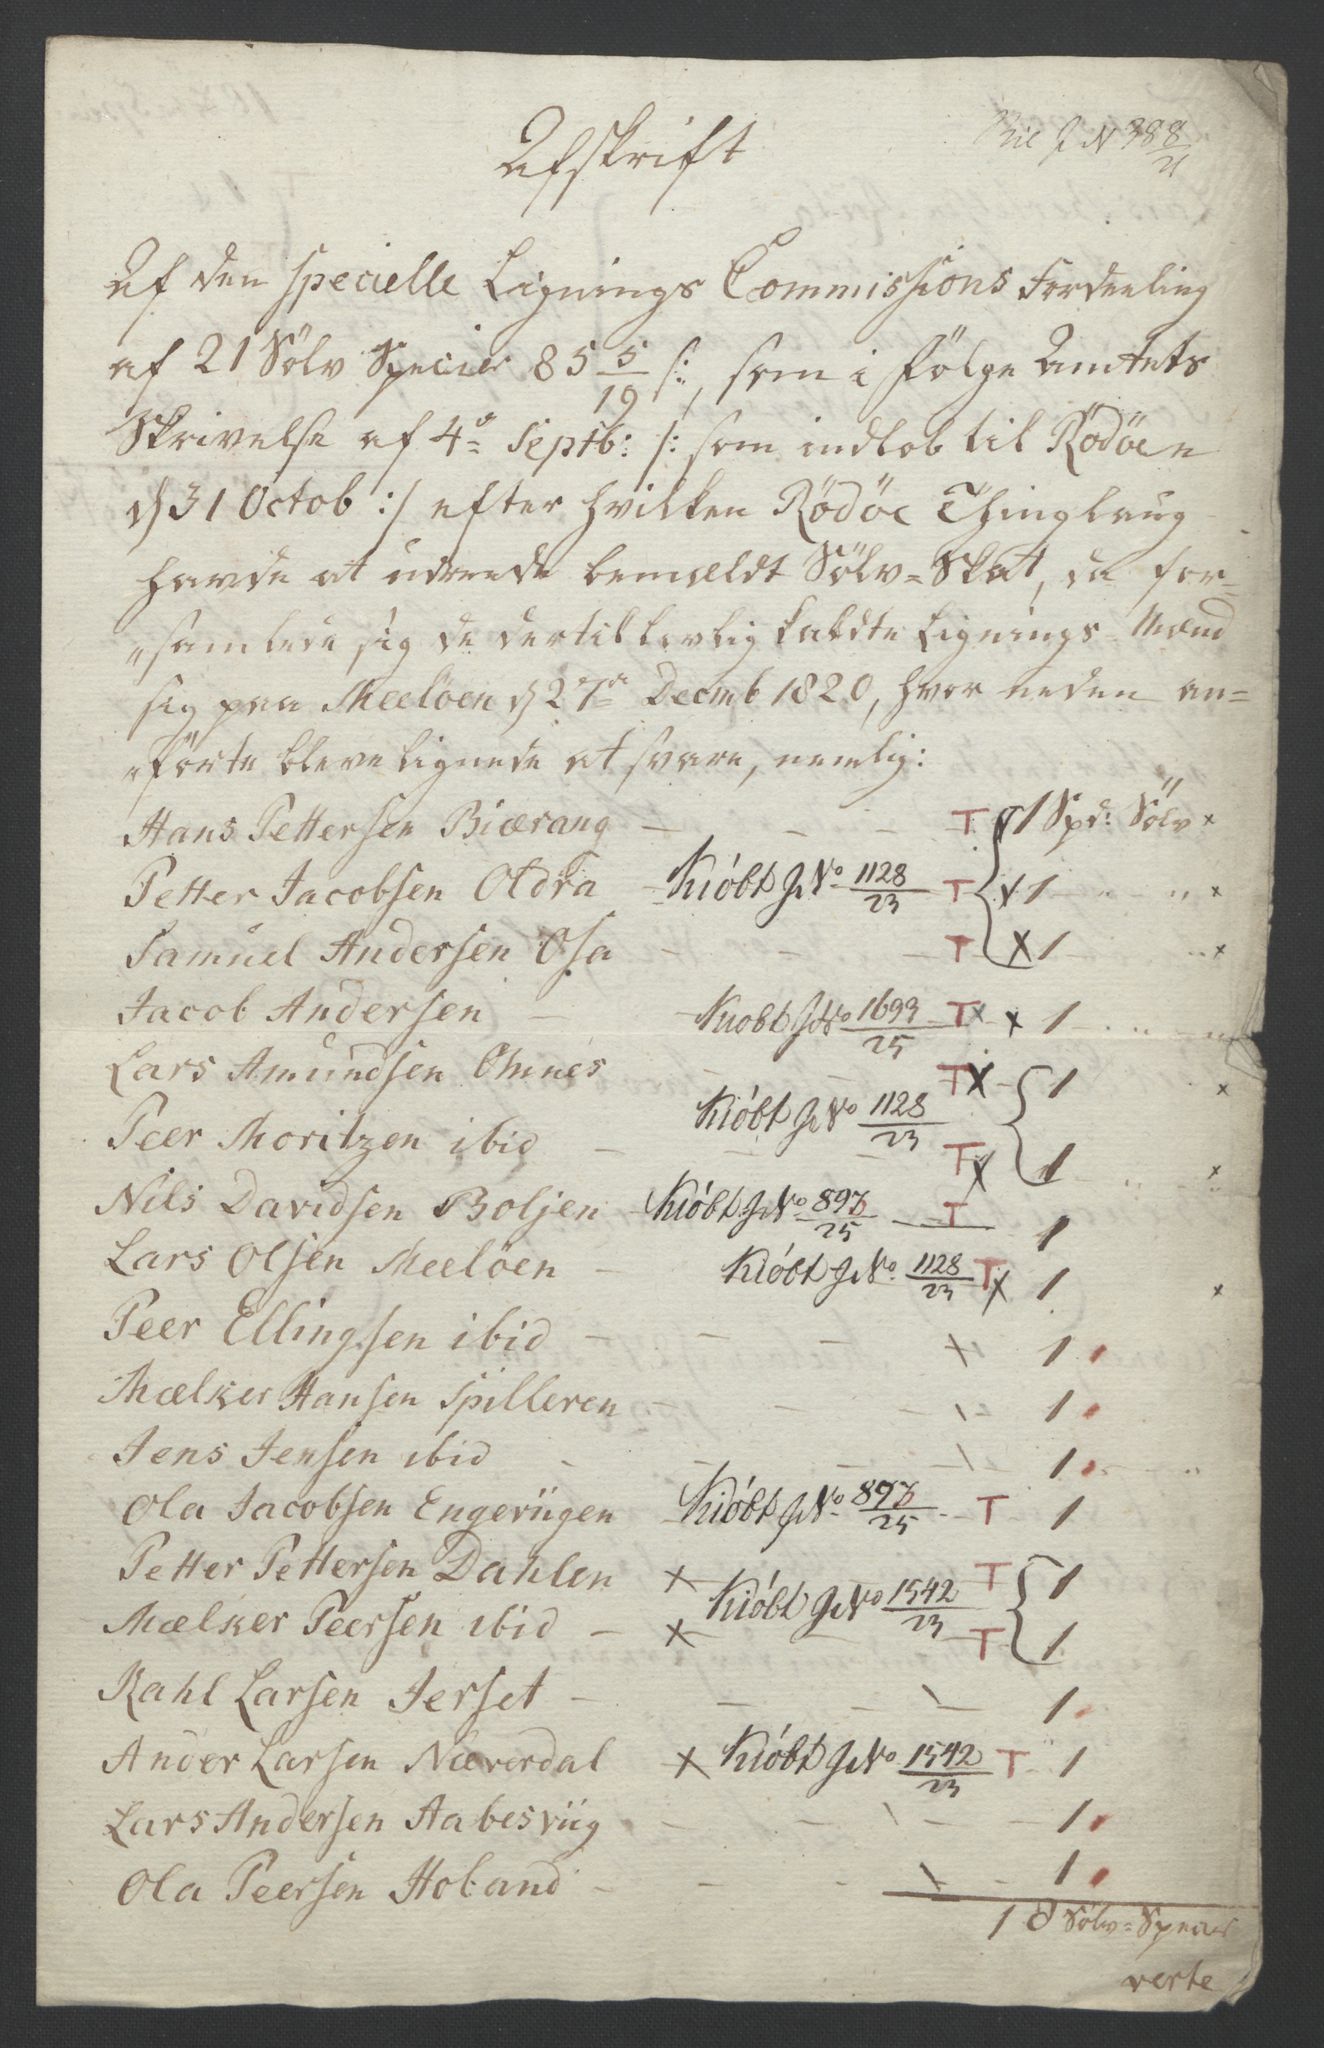 Bil J N 388/21
Afskrift
Af den specielle Lignings Commissions Fordeeling
af 21 Sölv Specier 85 5/19 s:, som i fölge Amtets
Skrivelse af 4de Septb: /: som indlob til Rödöen
d 31 Octob :/ efter hvilken Rödöe Thinglaug
havde at udrede bemældt Sölv=Skat, da for=
„samlede sig de dertil lovlig kaldte Lignings Mænd
sig paa Meelöen d 27de Decmb 1820, hvor neden an=
„förte bleve lignede at svare, nemlig:
Hans Pettersen Biærang - - - - T 1 Spd: Sölv x
Petter Jacobsen Oldra - Kióbt J No 1128/23 T x 1 - „ „ x
Samuel Andersen Osa - - - - T x 1 - „ x
Jacob Andersen - Kiobt J No 1693/25 T x x 1 - „ -
Lars Amundsen Ömnes - - - T x 1 „ x
Kióbt J No 1128/23
Peer Moritzen ibid - - - T x 1 - „ x
Nils Davidsen Boljen - Kióbt J No 897/25 T 1
Lars Olsen Meelöen - Kióbt J No 1128/23 T x 1 x
Peer Ellingsen ibid - - - x 1
Mælker Hansen Spilleren - - - \ - 1
Jens Jensen ibid - - - \ - 1 „
Ola Jacobsen Engeviigen - Kióbt J No 897/25 - T 1
Petter Pettersen Dahlen x T 1
Kióbt J No 1542/23
Mælker Peersen ibid - x - - T 1
Rahl Larsen Jerset - - - \ - 1
Ander Larsen Næverdal x Kióbt J No 1542/23 T 1
Lars Andersen Aabesviig - - \ - - 1
Ola Peersen Holand - - - \ - 1
18 Sölv=Specier
verte